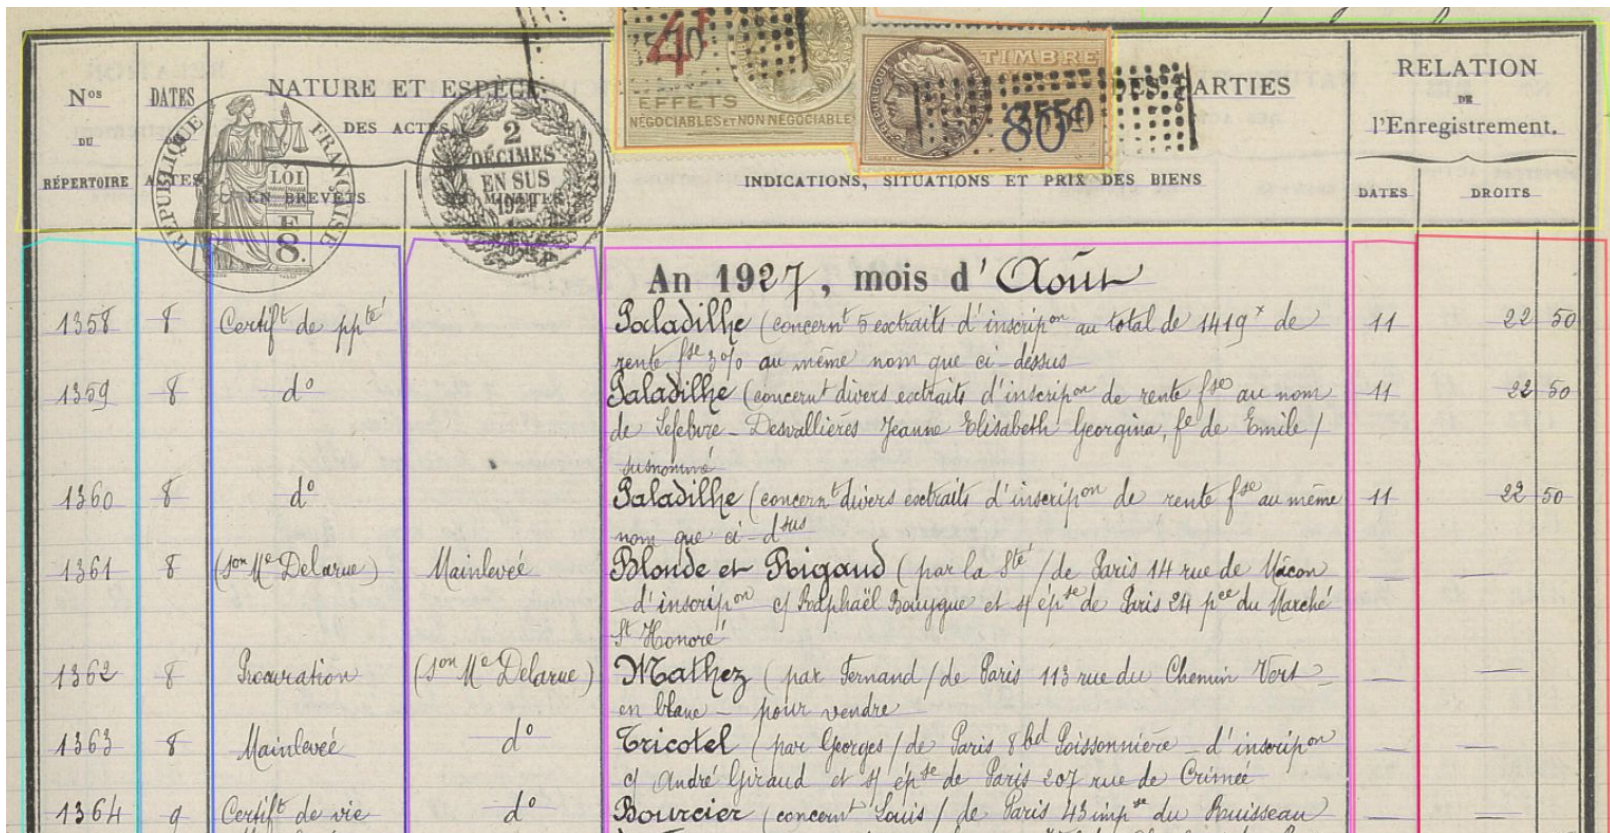 Nos DU RÉPERTOIRE
DATES
ACTES
NATURE ET ESPÈCE
DES ACTES
EN BREVETS
MINUTES
RÉPUBLIQUE FRANÇAISE
LOI
F
8.
2
DÉCIMES
EN SUS
EFFETS
NÉGOCIABLES ET NON NÉGOCIABLE
TIMBRE
DES PARTIES
INDICATIONS, SITUATIONS ET PRIX DES BIENS
RELATION
DE
l'Enregistrement.
DATES
DROITS
An 1927, mois d'Août
1358 8 Certift de ppté Paladilhe (concernt 5 extraits d'inscripon au total de 1419x de 11 22 50
rente fse 3% au même nom que ci-dessus
1359 8 do Paladilhe (concernt divers extraits d'inscripon de rente fse au nom 11 22 50
de Lefebvre-Desvallières Jeanne Elisabeth Georgina, fe de Emile /
susnommé
1360 8 do Paladilhe (concernt divers extraits d'inscripon de rente fse au même 11 22 50
nom que ci-dsus
1361 8 (son Me Delarue) Mainlevée Blonde et Rigaud (par la Sté / de Paris 14 rue de Mâcon — —
d'inscripon c/ Raphaël Bouygue et s/ épse de Paris 24 pce du Marché
St Honoré
1362 8 Procuration (son Me Delarue) Mathez (par Fernand / de Paris 113 rue du Chemin Vert — — —
en blanc — pour vendre
1363 8 Mainlevée do Tricotel (par Georges / de Paris 8 bd Poissonnière — d'inscripon — —
c/ André Giraud et s/ épse de Paris 207 rue de Crimée
1364 9 Certift de vie do Bourcier (concernt Louis / de Paris 43 impse du Ruisseau — —